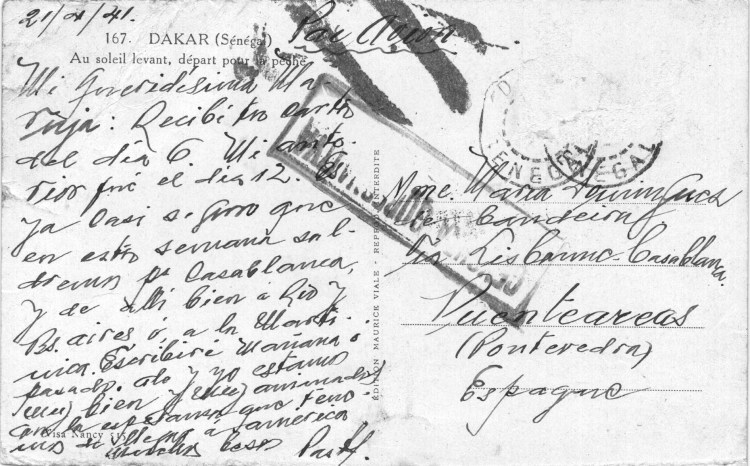 21/4/41.
Par Avion
167. DAKAR (Sénégal)
Au soleil levant, départ pour la pêche
Mi queridísima Ma
ruja: Recibí tu carta
del día 6. Mi ante
rior fué el día 12. Es
ya casi seguro que
en esta semana sal
dremos pa Casablanca,
y de allí bien á Rio y
Bs. aires ó a la Marti
nica. Escribiré mañana ó
pasado. y yo estamos
muy bien y muy animados
con la esperanza que tene
mos de llegar á America
muchos besos
Visa Nancy
EDITION MAURICE VIALE - REPRODUCTION INTERDITE
SENEGAL
SENEGAL
Mme. Maria Dominguez
de Candeira
Via Lisbonne-Casablanca
Puenteareas
(Pontevedra)
Espagne